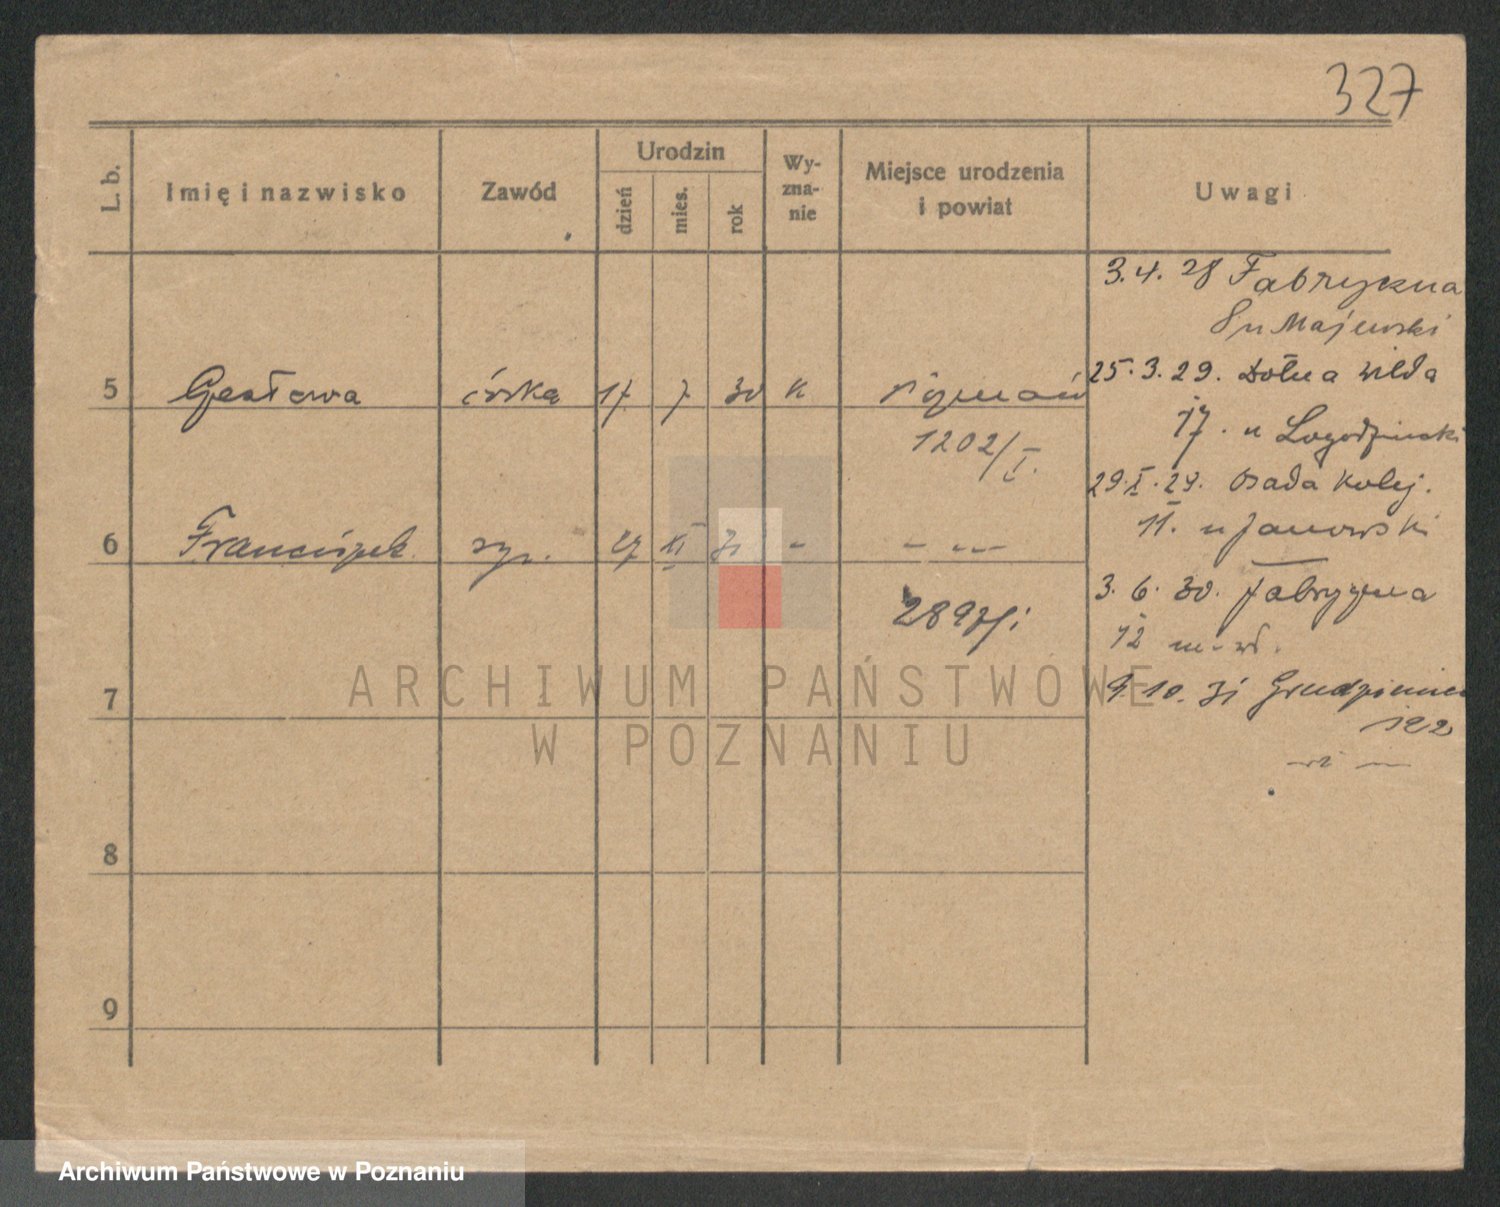 327
L. b.
Imię i nazwisko
Zawód
Urodzin
dzień
mies.
rok
Wy-
zna-
nie
Miejsce urodzenia
i powiat
Uwagi
3. 4. 28 Fabryczna
Majewski
5 córka 17 7 30 K Poznań
25. 3. 29. Dolna Wilda
1202/I.
17. u
29. X. 29. Osada Kolej.
6 Franciszek syn. 27 31 - - -
11. u Janowski
3. 6. 30. Fabryczna
2897/I
12
7
9. 10. 31 Grudzieniec
122
8
9
ARCHIWUM PAŃSTWOWE
W POZNANIU
Archiwum Państwowe w Poznaniu